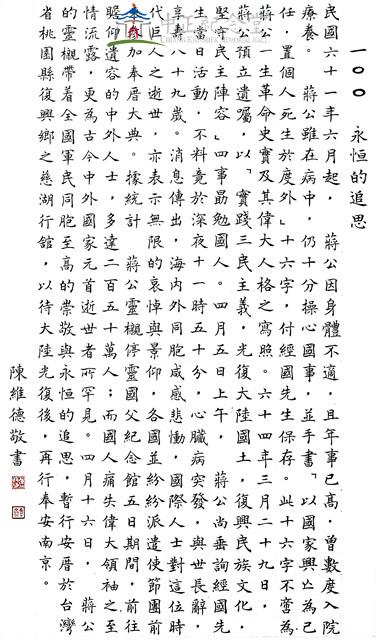 一○○ 永恒的追思
民國六十一年六月起， 蔣公因身體不適，且年事已高，曾數度入院
療養。 蔣公雖在病中，仍十分操心國事，並手書「以國家興亡為己
任，置個人死生於度外」十六字，付經國先生保存。此十六字不啻為
蔣公一生革命史實及其偉大人格之寫照。六十四年三月二十九日，
蔣公預立遺囑，以「實踐三民主義，光復大陸國土，復興民族文化，
堅守民主陣容」四事勗勉國人。四月五日上午， 蔣公尚垂詢經國先
生當日活動，不料竟於深夜十一時五十分，心臟病突發，與世長辭，
享壽八十九歲。消息傳出，海內外同胞咸感悲慟，國際人士對這位時
代巨人之逝世，亦表示無限的哀悼與景仰，各國並紛紛派遣使節團前
來參加奉厝大典。據統計 蔣公靈櫬停靈國父紀念館五日期間，前往
瞻仰遺容的中外人士，多達二百五十萬人；而國人痛失偉大領袖之至
情流露，更為古今中外國家元首逝世者所罕見。四月十六日， 蔣公
的靈櫬帶著全國軍民同胞至高的崇敬與永恒的追思，暫行安厝於台灣
省桃園縣復興鄉之慈湖行館，以待大陸光復後，再行奉安南京。
陳維德敬書
中正紀念堂